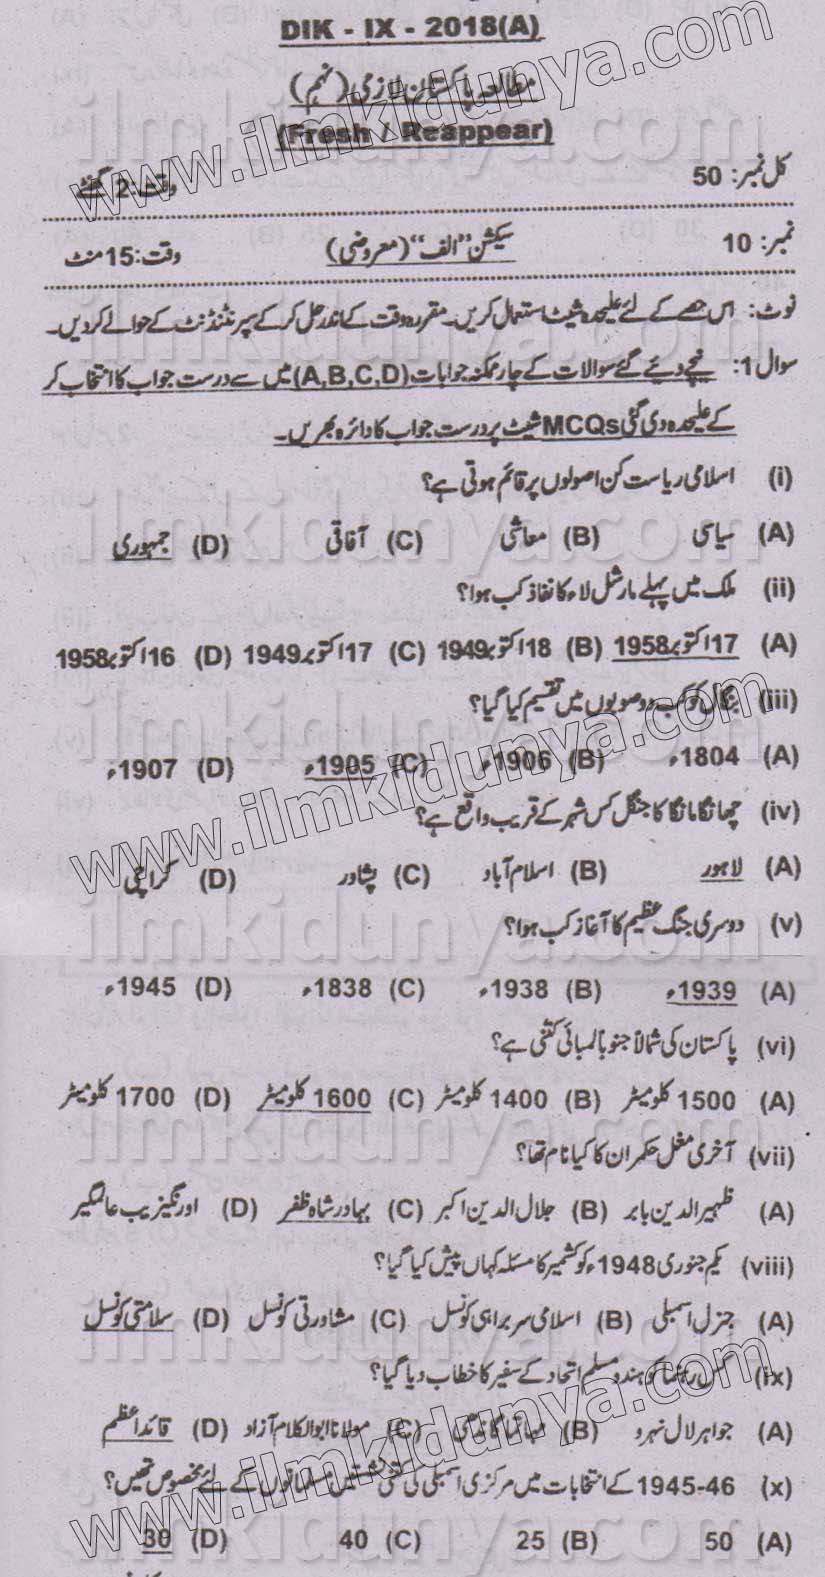 DIK - IX - 2018(A)
مطالعہ پاکستان لازمی (نہم)
(Fresh / Reappear)
کل نمبر: 50 وقت: 2 گھنٹے
نمبر: 10 سیکشن "الف" (معروضی) وقت: 15 منٹ
نوٹ: اس حصے کے لئے علیحدہ شیٹ استعمال کریں۔ مقررہ وقت کے اندر حل کر کے سپرنٹنڈنٹ کے حوالے کردیں۔
سوال 1: نیچے دیئے گئے سوالات کے چار ممکنہ جوابات (A,B,C,D) میں سے درست جواب کا انتخاب کر
کے علیحدہ دی گئی MCQs شیٹ پر درست جواب کا دائرہ بھریں۔
(i) اسلامی ریاست کن اصولوں پر قائم ہوتی ہے؟
(A) سیاسی (B) معاشی (C) آفاقی (D) جمہوری
(ii) ملک میں پہلے مارشل لاء کا نفاذ کب ہوا؟
(A) 17 اکتوبر 1958 (B) 18 اکتوبر 1949 (C) 17 اکتوبر 1949 (D) 16 اکتوبر 1958
(iii) بنگال کو کب دو صوبوں میں تقسیم کیا گیا؟
(A) 1804ء (B) 1906ء (C) 1905ء (D) 1907ء
(iv) چھانگا مانگا کا جنگل کس شہر کے قریب واقع ہے؟
(A) لاہور (B) اسلام آباد (C) پشاور (D) کراچی
(v) دوسری جنگ عظیم کا آغاز کب ہوا؟
(A) 1939ء (B) 1938ء (C) 1838ء (D) 1945ء
(vi) پاکستان کی شمالاً جنوباً لمبائی کتنی ہے؟
(A) 1500 کلومیٹر (B) 1400 کلومیٹر (C) 1600 کلومیٹر (D) 1700 کلومیٹر
(vii) آخری مغل حکمران کا کیا نام تھا؟
(A) ظہیر الدین بابر (B) جلال الدین اکبر (C) بہادر شاہ ظفر (D) اورنگزیب عالمگیر
(viii) یکم جنوری 1948ء کو کشمیر کا مسئلہ کہاں پیش کیا گیا؟
(A) جنرل اسمبلی (B) اسلامی سربراہی کونسل (C) مشاورتی کونسل (D) سلامتی کونسل
(ix) کس رہنما کو ہندو مسلم اتحاد کے سفیر کا خطاب دیا گیا؟
(A) جواہر لال نہرو (B) مہاتما گاندھی (C) مولانا ابوالکلام آزاد (D) قائد اعظم
(x) 1945-46 کے انتخابات میں مرکزی اسمبلی کی کتنی نشستیں مسلمانوں کے لئے مخصوص تھیں؟
(A) 50 (B) 25 (C) 40 (D) 30
www.ilmkidunya.com
www.ilmkidunya.com
www.ilmkidunya.com